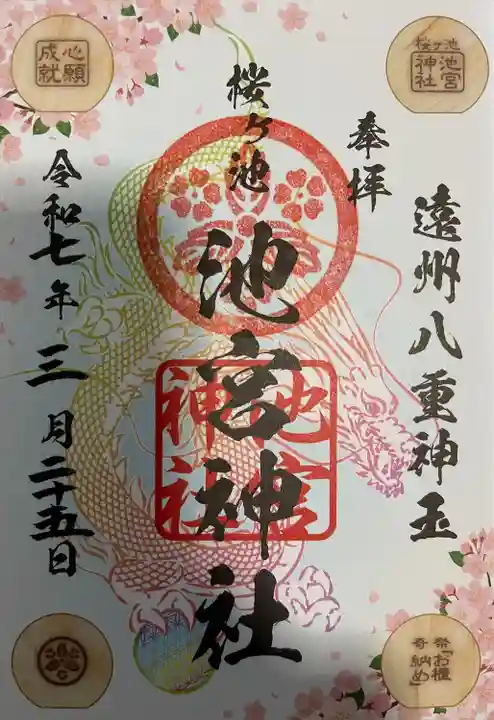 遠州八重神玉
奉拝
桜ヶ池
池宮神社
令和七年三月二十五日
池宮
神社
心願
成就
桜ヶ池
池宮
神社
祭「お櫃
奇納め」